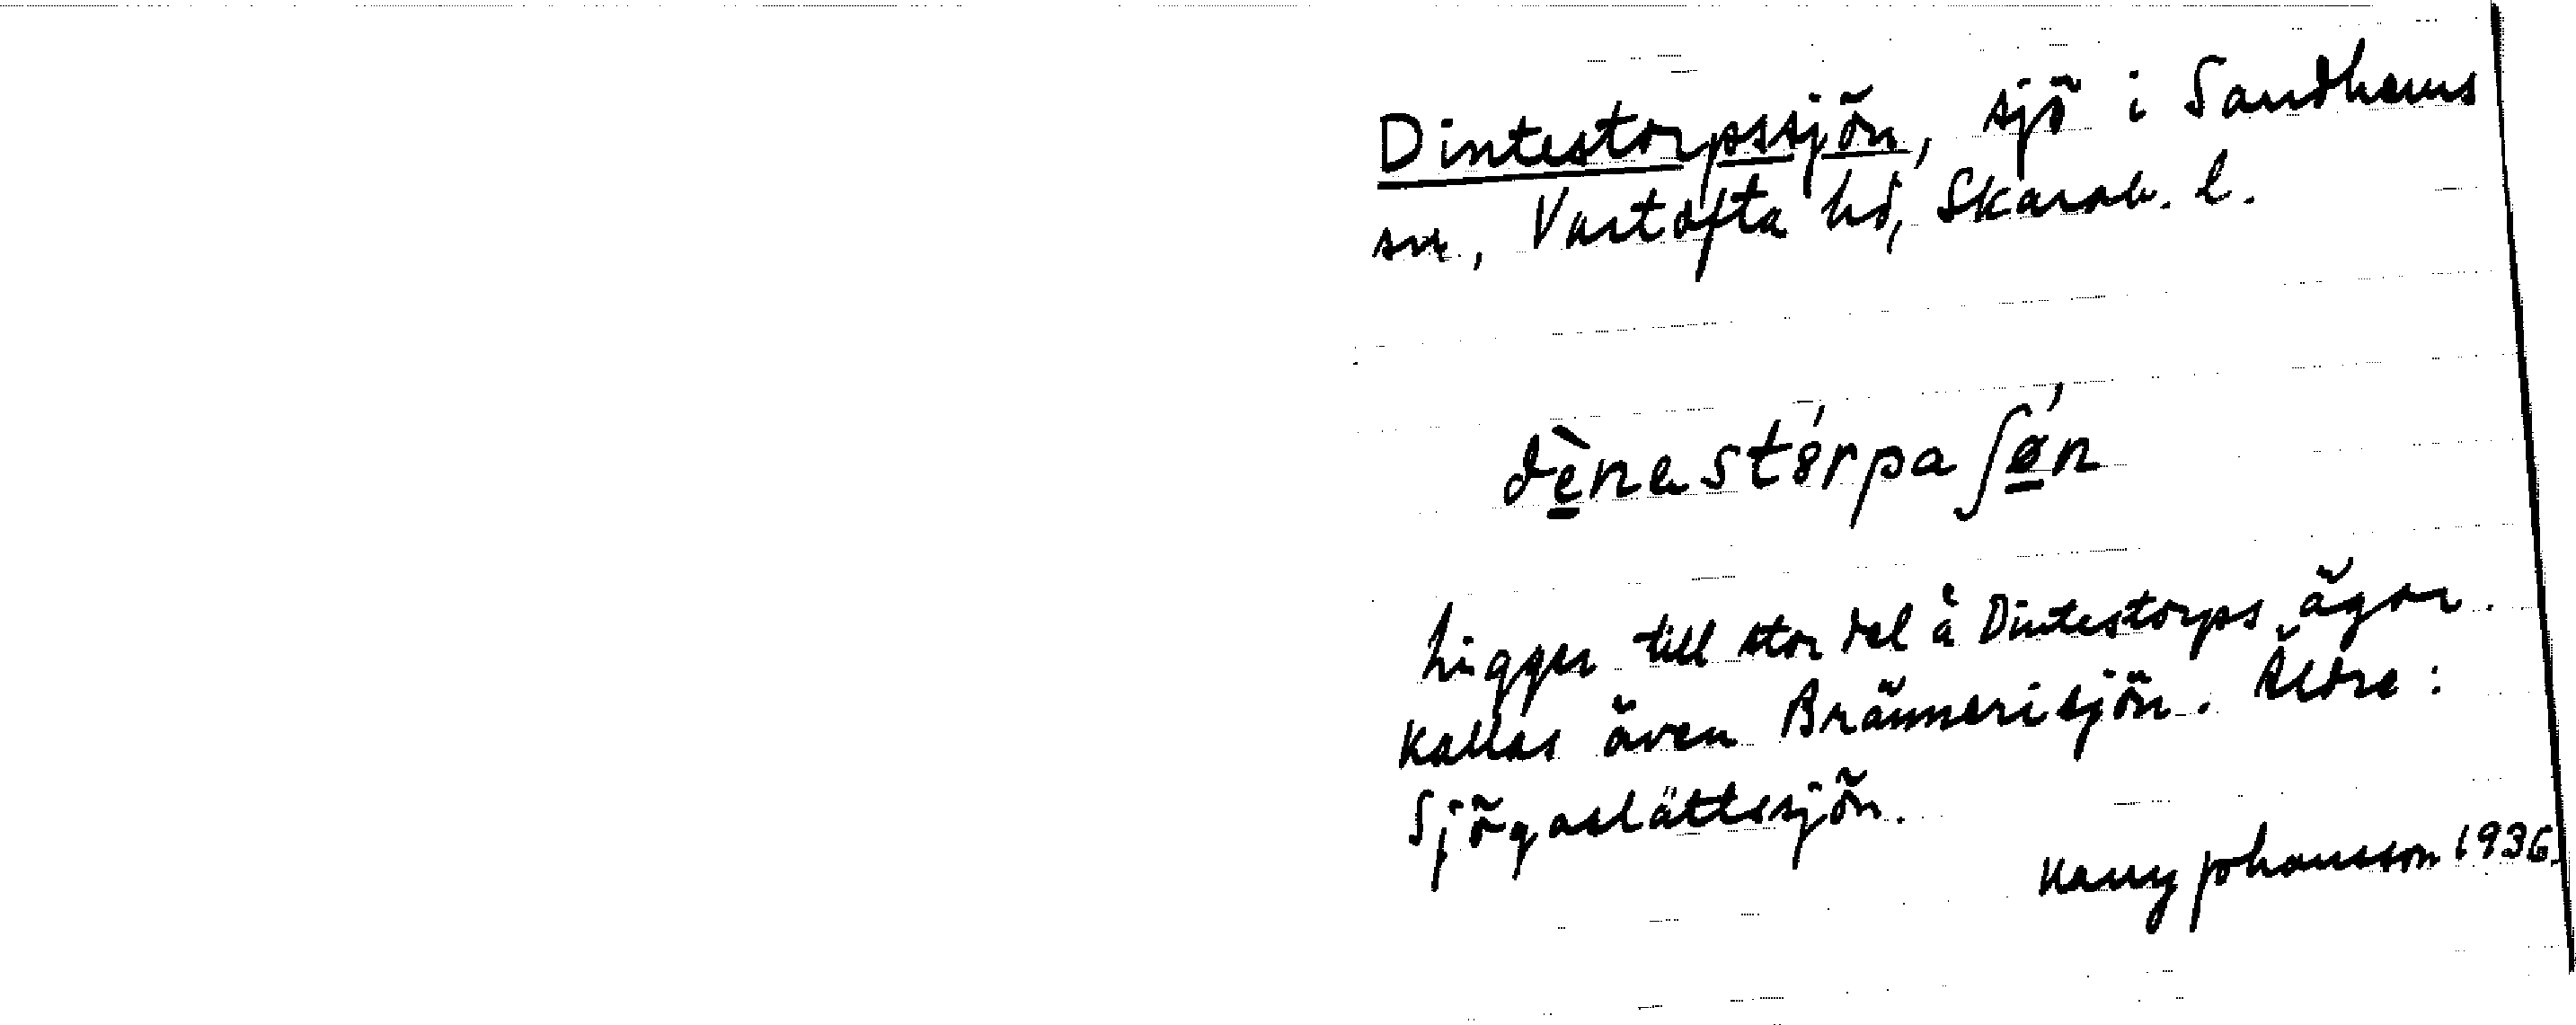 Dintestorpssjön, sjö i Sandhems
sn, Vartofta hd, Skarab. l.
dènastórpaʃǿn
Ligger till stor del å Dintestorps ägor.
Kallas även Brännerisjön. Äldre:
Sjögaslättssjön.
Harry Johansson 1936